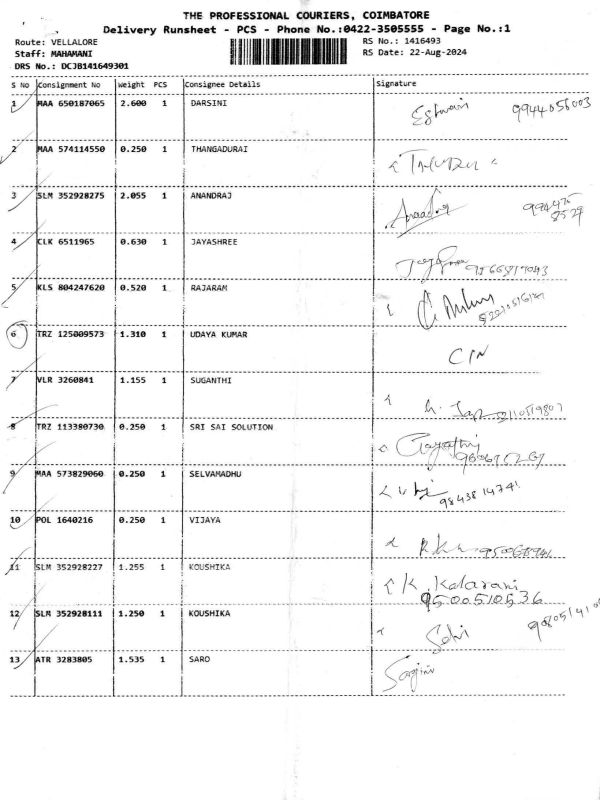 THE PROFESSIONAL COURIERS, COIMBATORE
Delivery Runsheet - PCS - Phone No.:0422-3505555 - Page No.:1
Route: VELLALORE RS No.: 1416493
Staff: MAHAMANI RS Date: 22-Aug-2024
DRS No.: DCJB141649301
S No Consignment No Weight PCS Consignee Details Signature
1 MAA 650187065 2.600 1 DARSINI
2 MAA 574114550 0.250 1 THANGADURAI
3 SLM 352928275 2.055 1 ANANDRAJ
4 CLK 6511965 0.630 1 JAYASHREE
5 KLS 804247620 0.520 1 RAJARAM
6 TRZ 125009573 1.310 1 UDAYA KUMAR
7 VLR 3260841 1.155 1 SUGANTHI
8 TRZ 113380730 0.250 1 SRI SAI SOLUTION
9 MAA 573829060 0.250 1 SELVAMADHU
9843814741
10 POL 1640216 0.250 1 VIJAYA
11 SLM 352928227 1.255 1 KOUSHIKA K. Kalarani
9500510536
12 SLM 352928111 1.250 1 KOUSHIKA Selvi
13 ATR 3283805 1.535 1 SARO